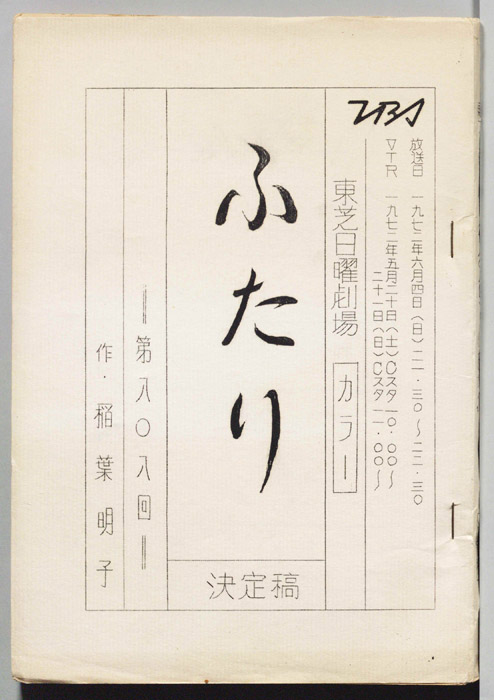 TBS
放送日 一九七二年六月四日(日)二一・三〇〜二二・三〇
VTR 一九七二年五月二十日(土)Cスタ一〇・〇〇〜
二十一日(日)Cスタ一一・〇〇〜
東芝日曜劇場 カラー
ふたり
決定稿
第八〇八回
作・稲葉明子